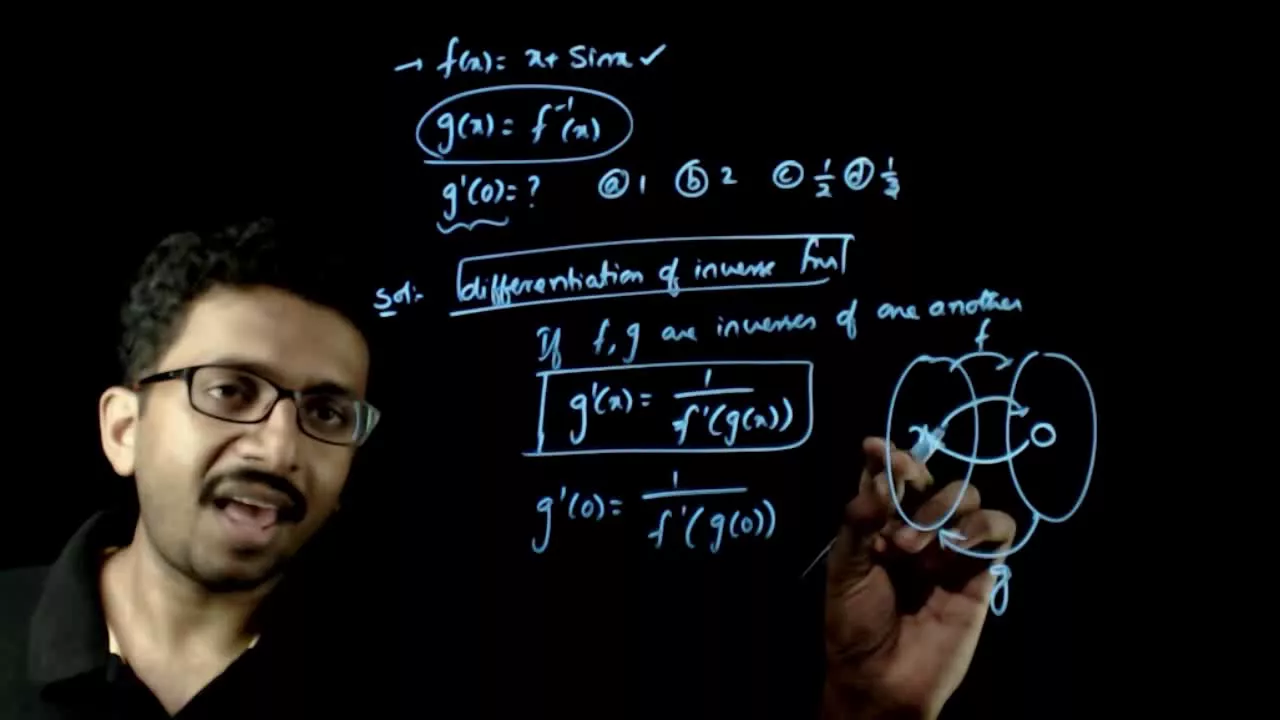 → f(x) = x + Sinx ✓
g(x) = f⁻¹(x)
g'(0) = ? ⓐ 1 ⓑ 2 ⓒ 1/2 ⓓ 1/3
Sol:- differentiation of inverse fns
If f, g are inverses of one another
g'(x) = 1/f'(g(x))
g'(0) = 1/f'(g(0))
f
x 0
g